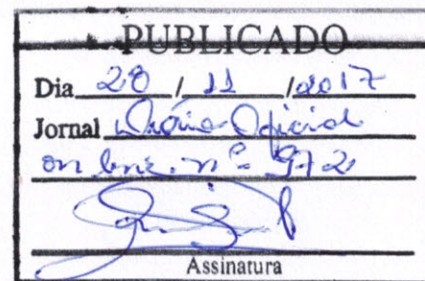 PUBLICADO
Dia 28 / 11 / 2017
Jornal Diário Oficial
on line. nº 972
Assinatura